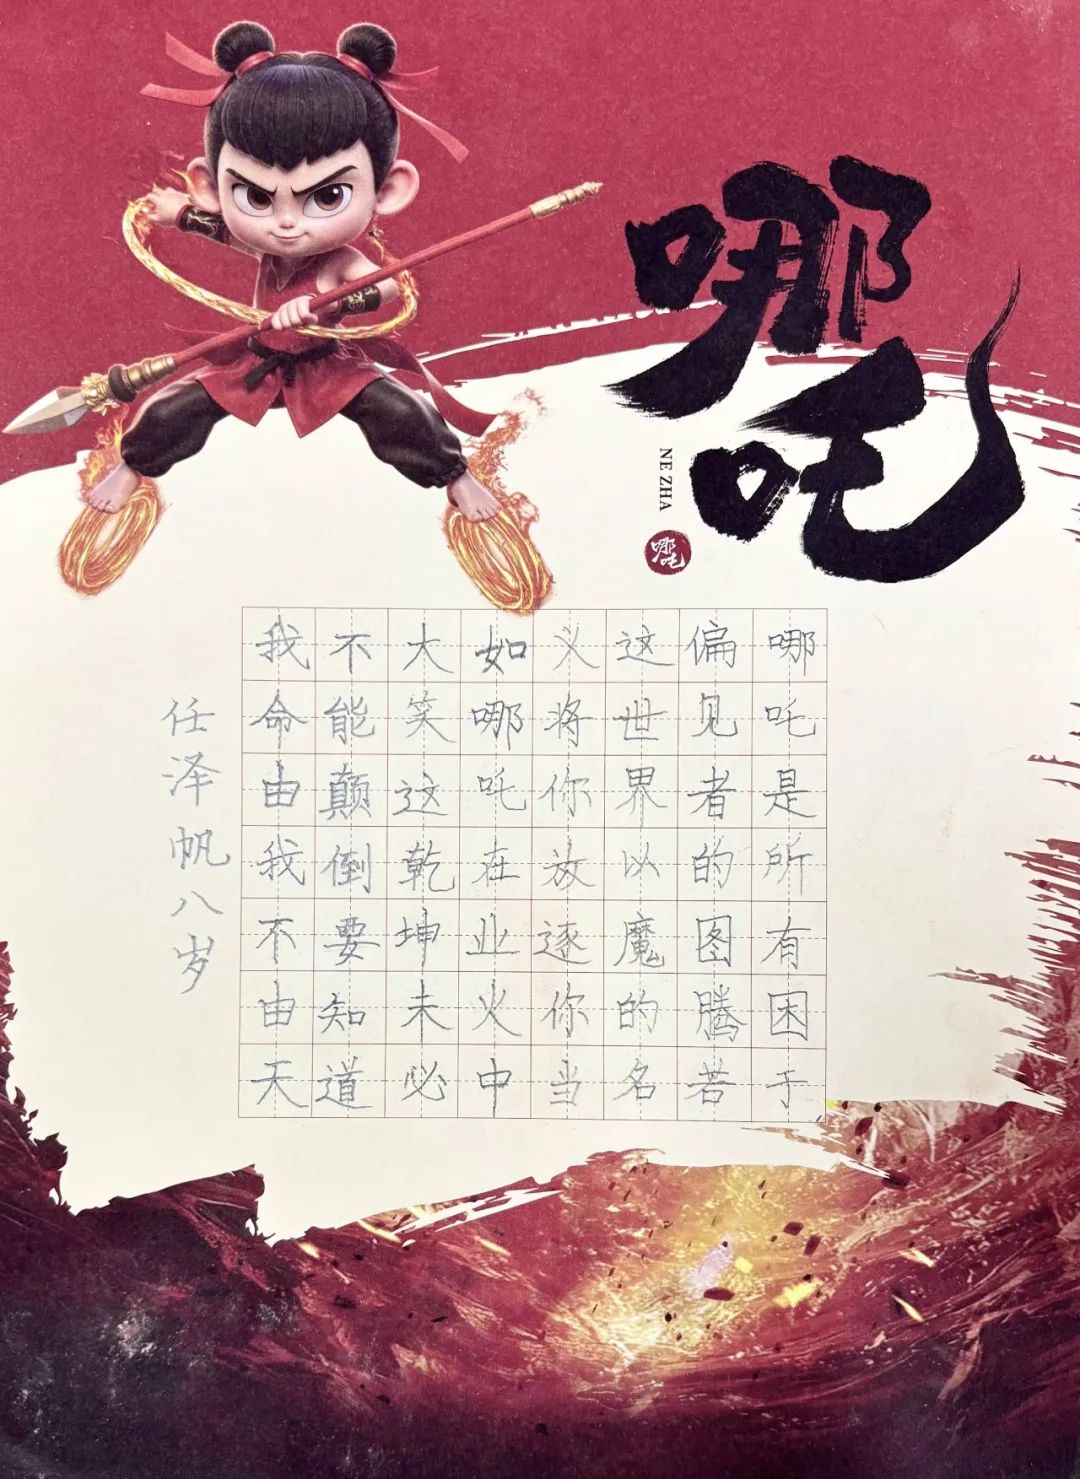 哪
吒
NE ZHA
哪吒
哪吒是所有困于
偏见者的图腾若
这世界以魔的名
义将你放逐你当
如哪吒在业火中
大笑这乾坤未必
不能颠倒要知道
我命由我不由天
任泽帆八岁